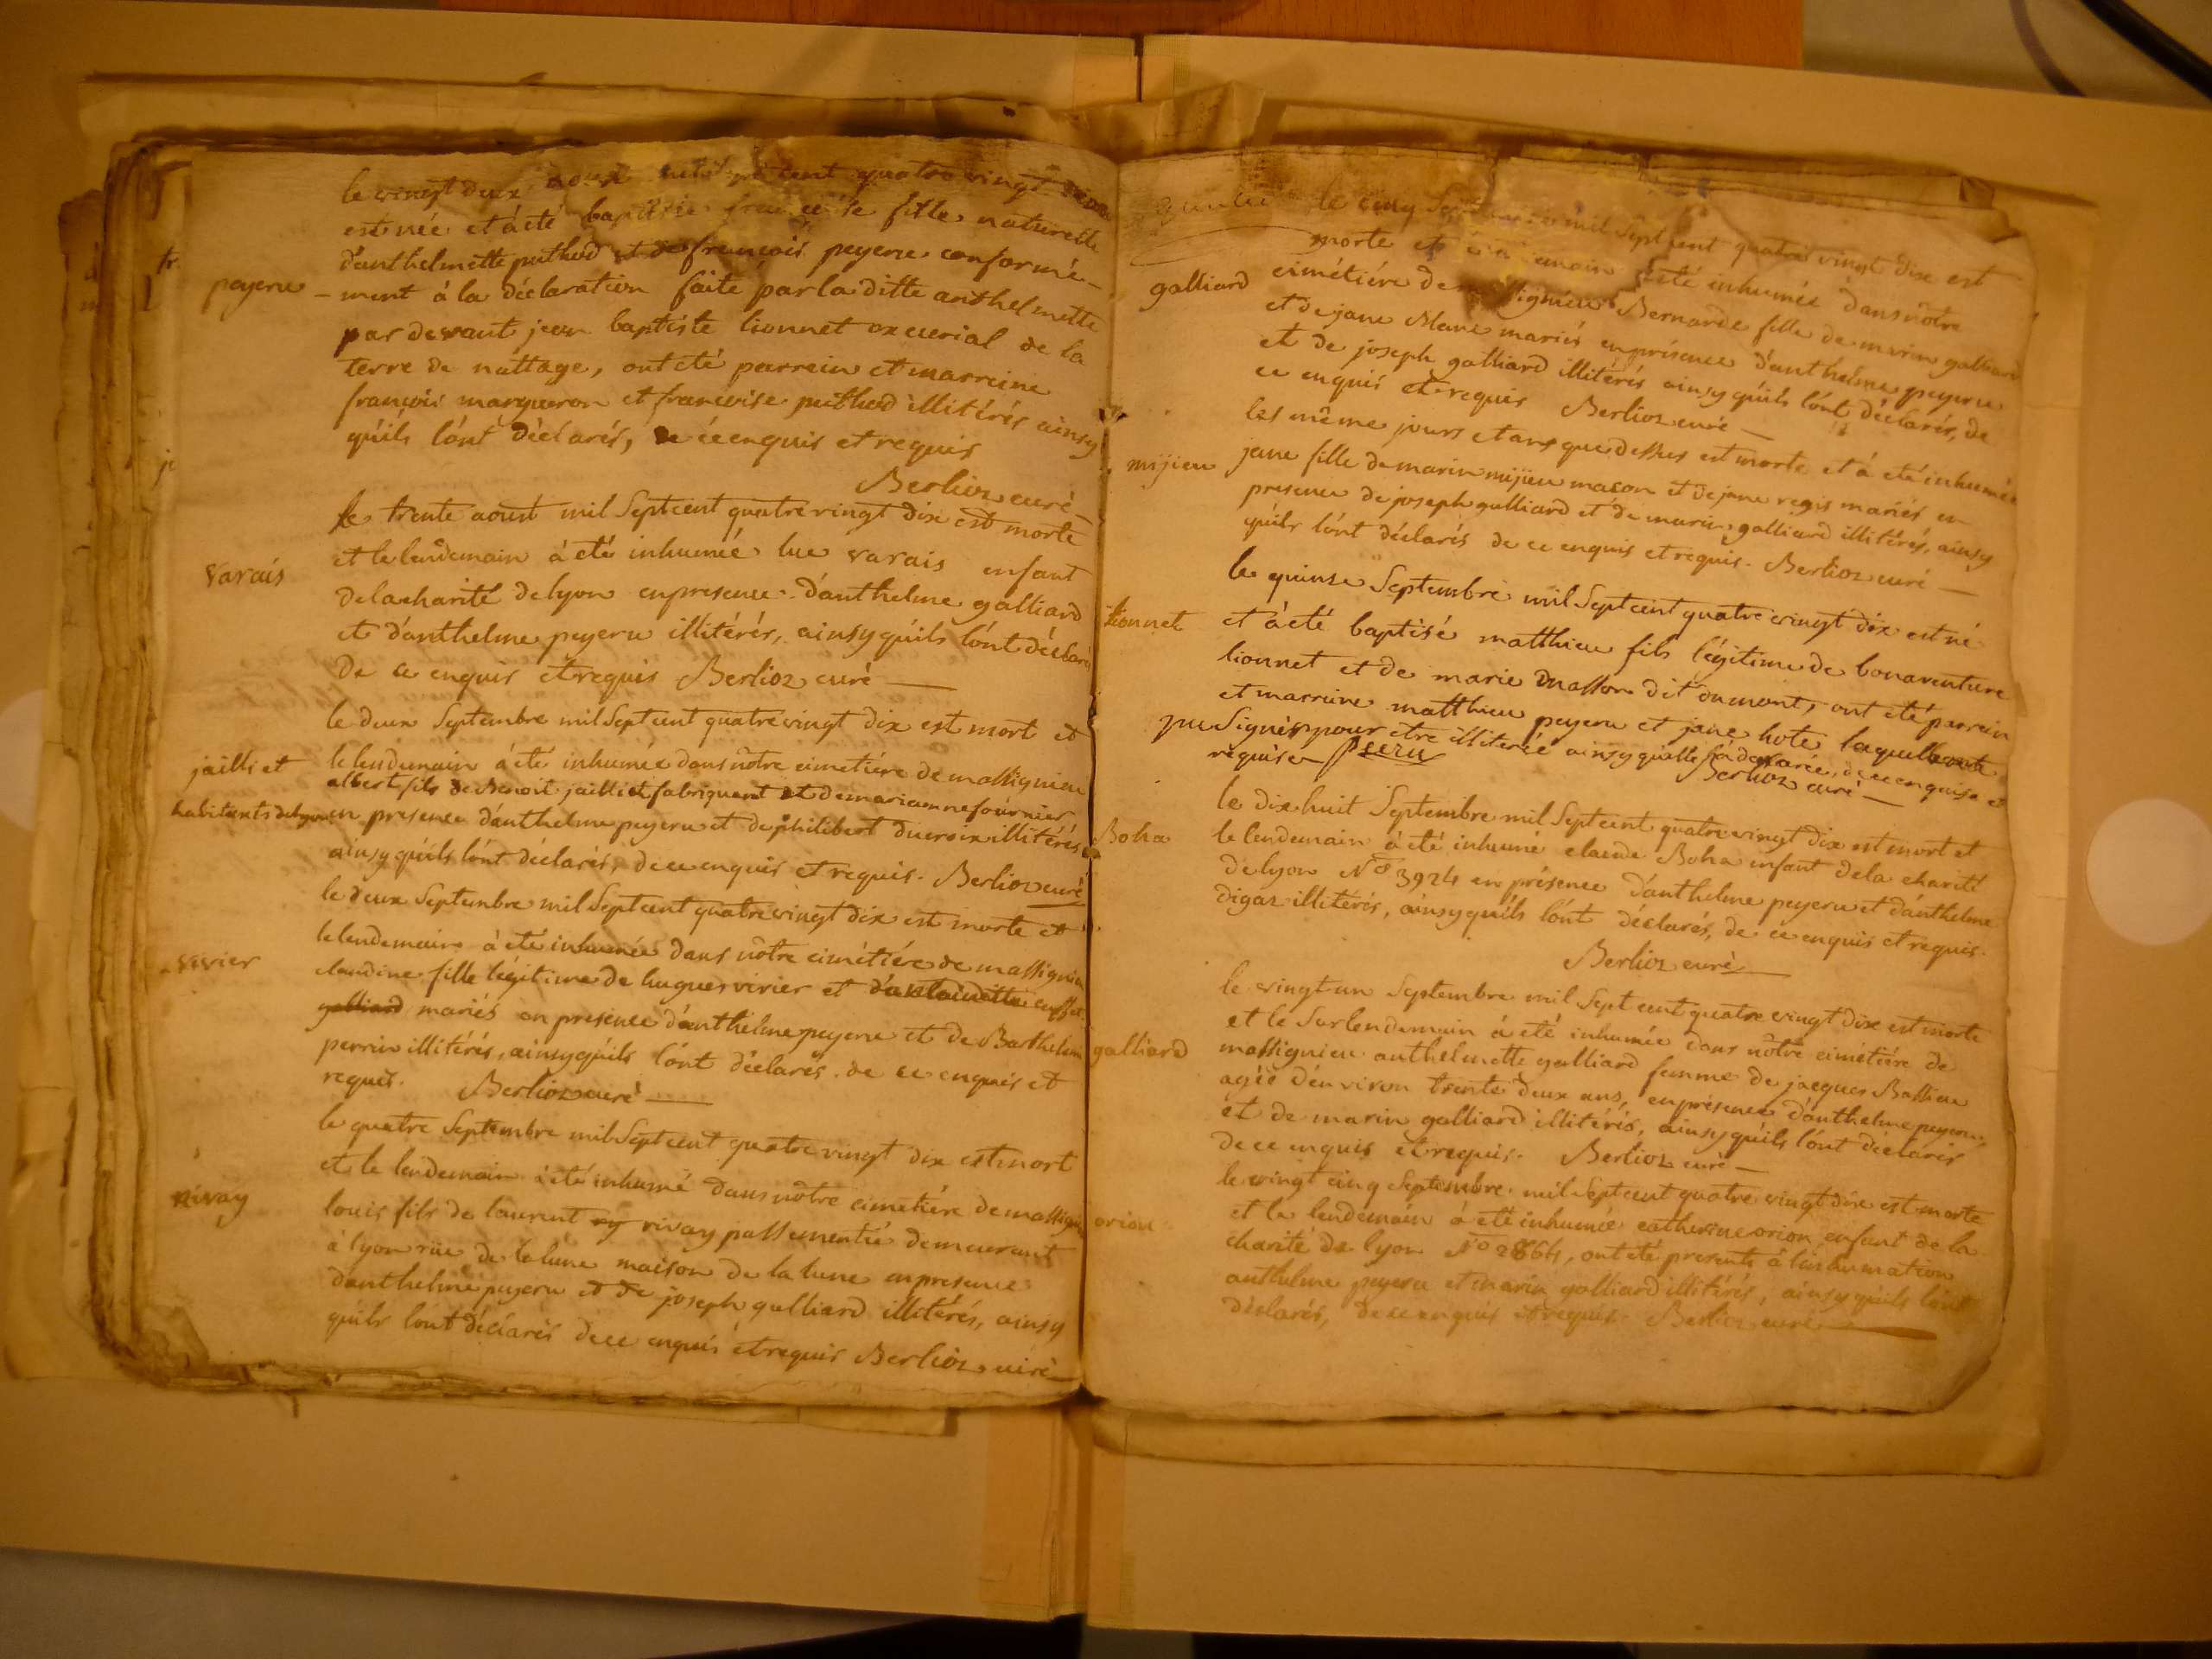 le vingt deux aoust mil sept cent quatre vingt
est née et à eté baptisée francoise fille naturelle
d'anthelmette puthod et de françois peyeru conformé-
peyeru - ment à la déclaration faite par la ditte anthelmette
par devant jean baptiste lionnet ex curial de la
terre de nattage, ont eté parrein et marreine
françois marqueron et francoise puthod illitérés ainsy
qu'ils l'ont déclarés, de ce enquis et requis
Berlioz curé
le trente aoust mil Sept cent quatre vingt dix est morte
et le lendemain à eté inhumée luc varais enfant
varais
de la charité de lyon en presence d'anthelme galliard
et d'anthelme peyeru illitérés, ainsy qu'ils l'ont déclarés
de ce enquis et requis Berlioz curé
le deux Septembre mil Sept cent quatre vingt dix est mort et
jailliet le lendemain à eté inhumée dans nôtre cimetiére de massignieu
albert fils de Benoit jailliet fabriquant et de marianne fournier
habitants de lyon en presence d'anthelme peyeru et de philibert ducroix illitérés
ainsy qu'ils l'ont déclarés, de ce enquis et requis. Berlioz curé
le deux Septembre mil Sept cent quatre vingt dix est morte et
le lendemain à eté inhumée dans nôtre cimétiére de massignieu
vivier
claudine fille légitime de hugues vivier et
galliard mariés en presence d'anthelme peyeru et de Barthelemi
perrin illitérés, ainsy qu'ils l'ont déclarés de ce enquis et
requis. Berlioz curé
le quatre Septembre mil Sept cent quatre vingt dix est mort
et le lendemain à eté inhumé dans nôtre cimetiére de massignieu
rivay
louis fils de laurent ry rivay passementié demeurant
à lyon rüe de la lune maison de la lune en presence
d'anthelme peyeru et de joseph galliard illitérés, ainsy
qu'ils l'ont déclarés de ce enquis et requis Berlioz curé
le cinq Septembre mil Sept cent quatre vingt dix est
morte et le lendemain à eté inhumée dans nôtre
galliard cimétiére de massignieu Bernarde fille de marin galliard
et de jane Blanc mariés en présence d'anthelme peyeru
et de joseph galliard illitérés ainsy qu'ils l'ont déclarés, de
ce enquis et requis Berlioz curé
les même jours et ans que dessus est morte et à eté inhumée
mijieu jane fille de marin mijieu macon et de jane regis mariés en
presence de joseph galliard et de marin galliard illitérés, ainsy
qu'ils l'ont déclarés de ce enquis et requis. Berlioz curé
le quinze Septembre mil Sept cent quatre vingt dix est né
lionnet et à eté baptisé matthieu fils légitime de bonaventure
lionnet et de marie dit dumont, ont eté parrein
et marreine matthieu peyeru et jane hote laquelle
pu Signér pour etre illiterée ainsy qu'elle l'a declarée, de ce enquise et
requise Peeru Berlioz curé
le dix huit Septembre mil Sept cent quatre vingt dix est mort et
Boha le lendemain à eté inhumé claude Boha enfant de la charité
de lyon N° 3924 en présence d'anthelme peyeru et d'anthelme
digaz illitérés, ainsy qu'ils l'ont déclarés, de ce enquis et requis.
Berlioz curé
le vingt un Septembre mil Sept cent quatre vingt dix est morte
et le Surlendemain à eté inhumée dans nôtre cimétiére de
galliard massignieu anthelmette galliard femme de jacques Bassieu
agée d'environ trente deux ans, en présence d'anthelme peyeru,
et de marin galliard illitérés, ainsy qu'ils l'ont déclarés
de ce enquis et requis. Berlioz curé
le vingt cinq Septembre mil Sept cent quatre vingt dix est morte
orion et le lendemain à eté inhumée catherine orion enfant de la
charité de lyon N° 2864, ont eté presents à l'inhumation
anthelme peyeru et marin galliard illitérés, ainsy qu'ils l'ont
déclarés, de ce enquis et requis. Berlioz curé